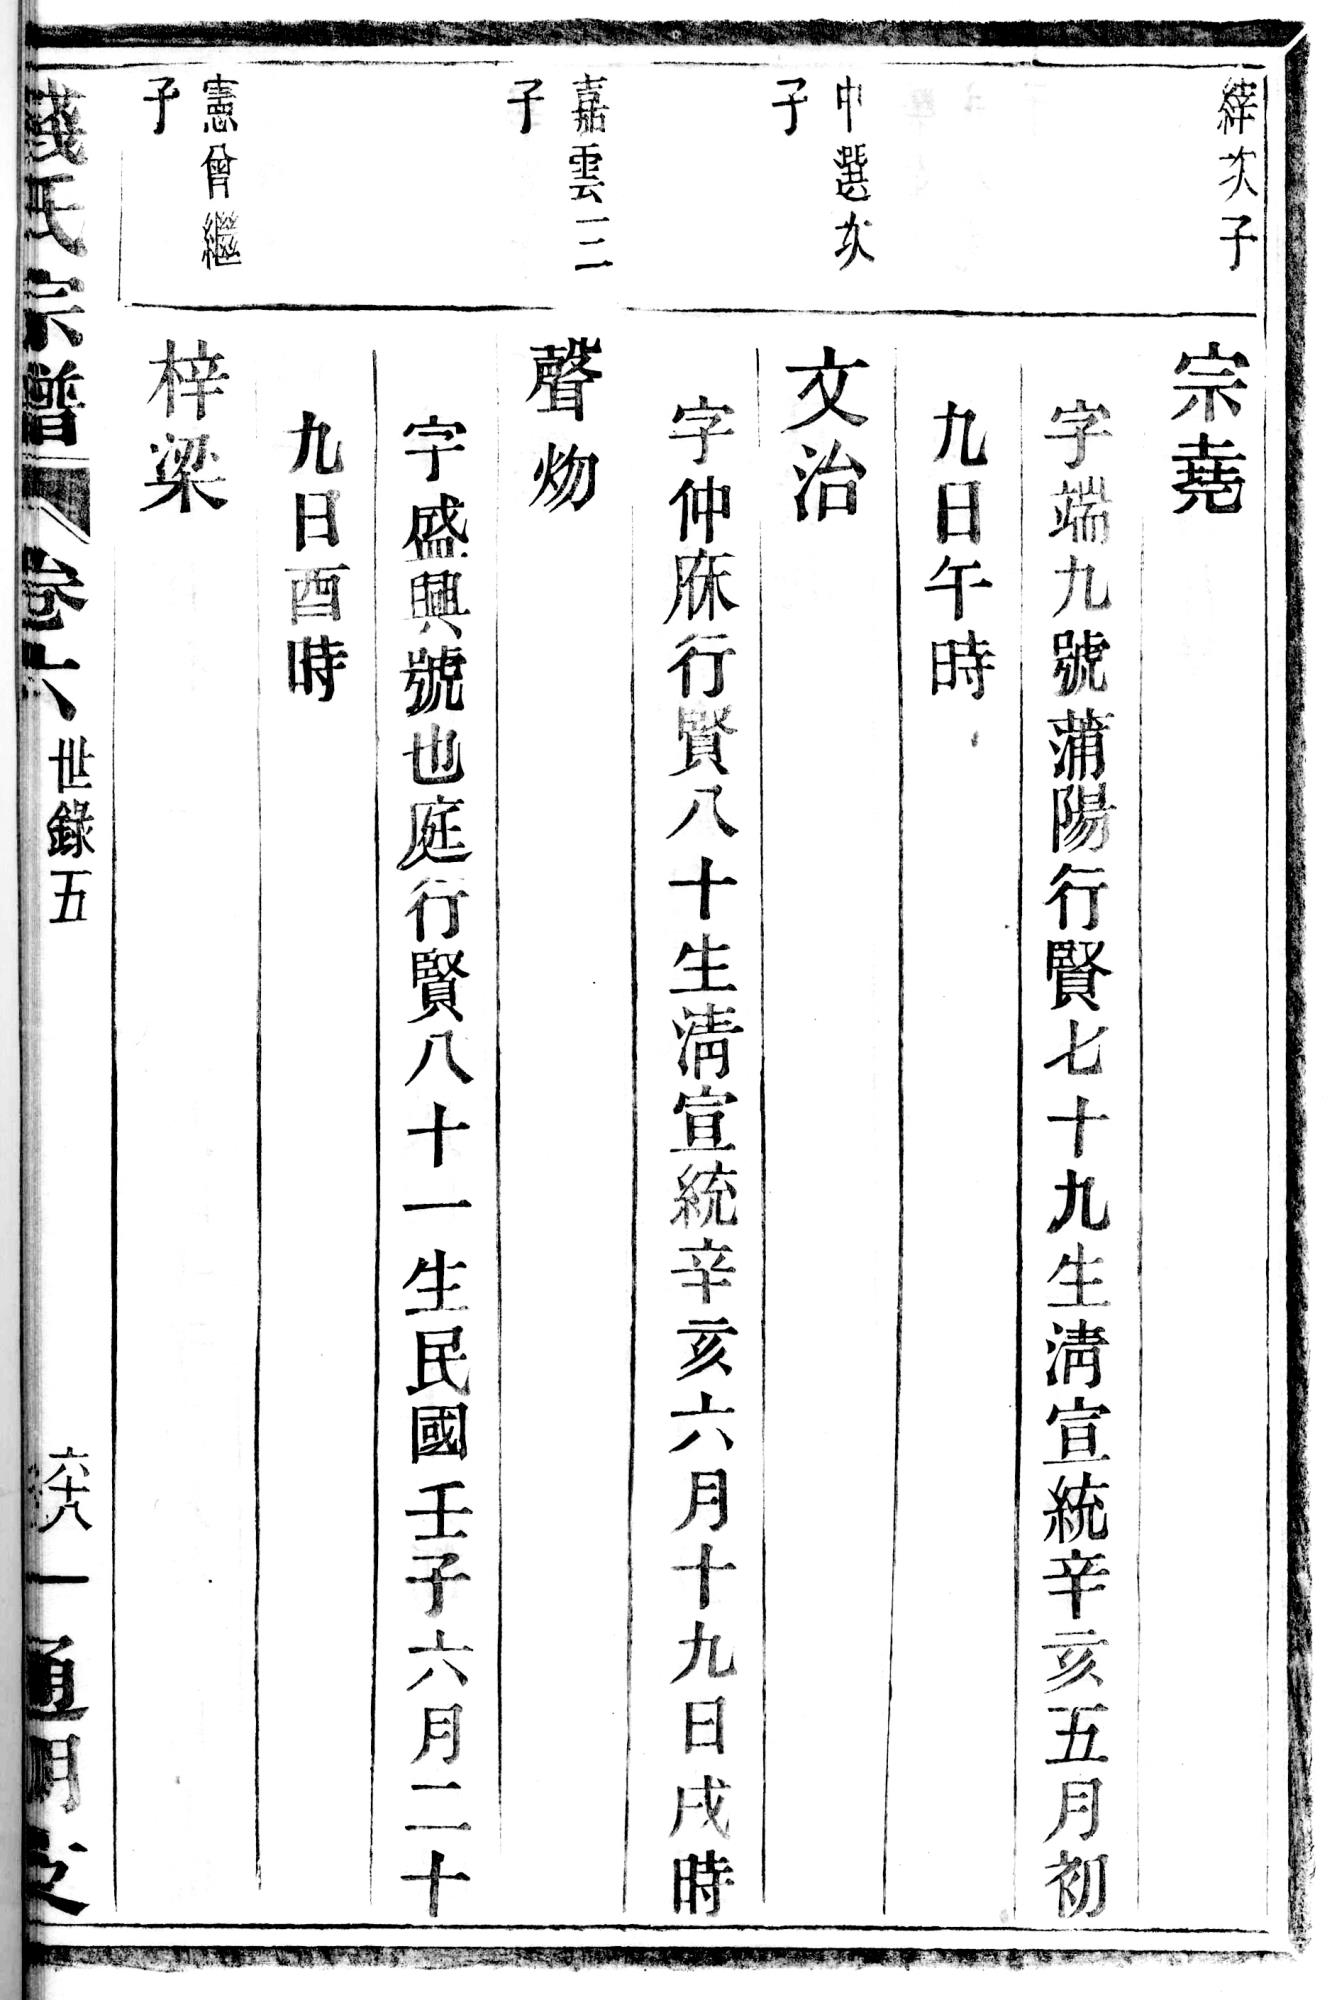 縡次子
宗堯
字端九號蒲陽行賢七十九生清宣統辛亥五月初
九日午時
中選次
子
文治
字仲庥行賢八十生清宣統辛亥六月十九日戌時
嘉雲三
子
聲灳
字盛興號也庭行賢八十一生民國壬子六月二十
九日酉時
憲曾繼
子
梓梁
錢氏宗譜 卷六 世錄五 六十八 通明支